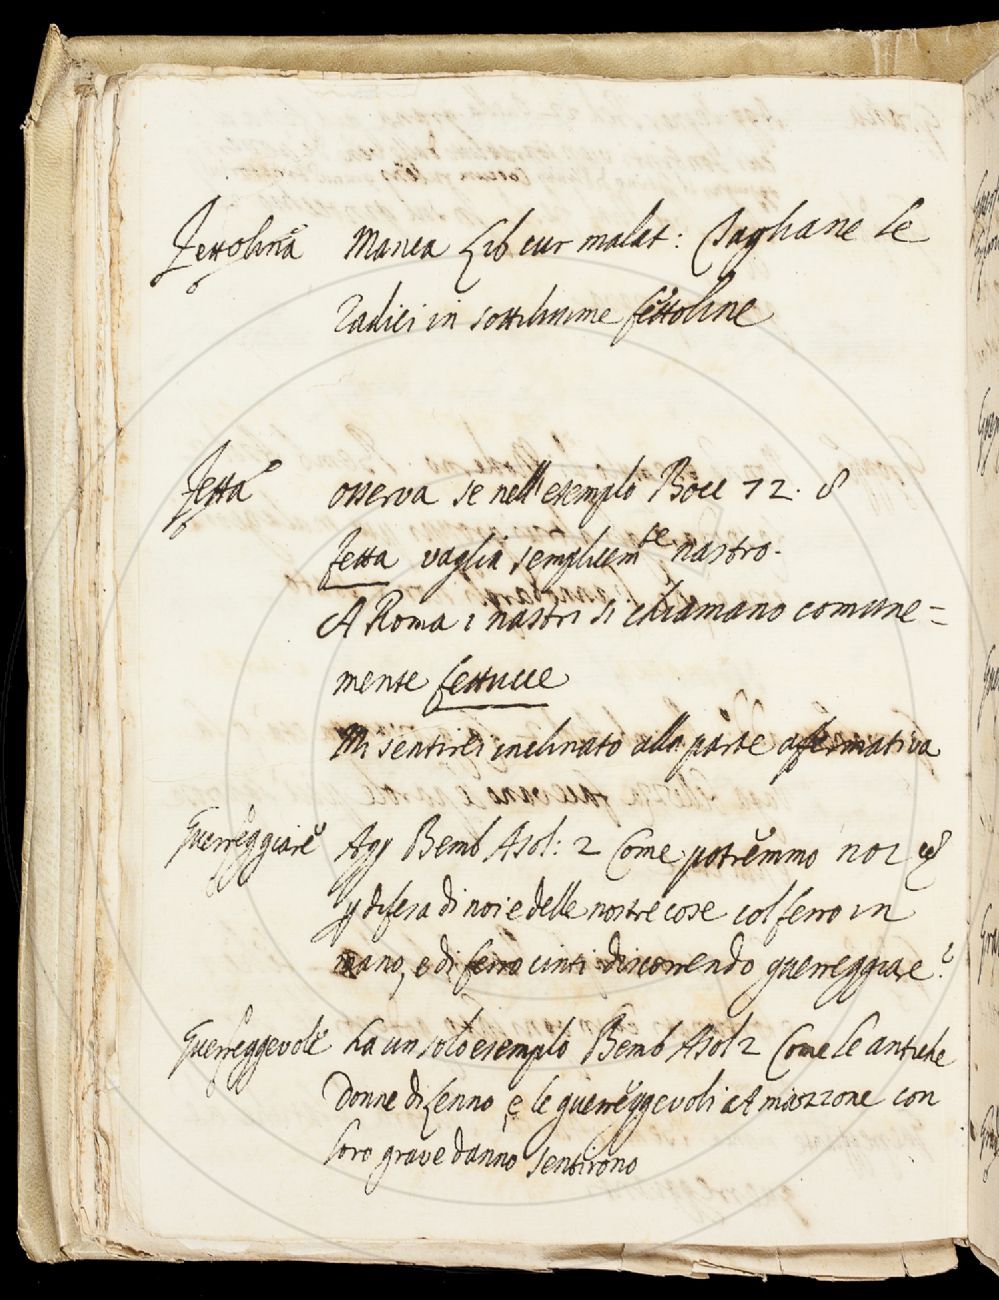 Fettolina Manca Lib cur malat: Tagliane le
radici in sottilissime fettoline
Fetta osserva se nell'esemplo Bocc 72. 8
fetta vaglia semplicemte nastro.
A Roma i nastri si chiamano comune=
mente fettucce
Mi sentirei inclinato alla parte affermativa
Guerreggiare Agg Bemb Asol: 2 Come potremmo noi
difesa di noi e delle nostre cose col ferro in
mano, e di ferro cinti discorrendo guerreggiare?
Guerreggevole Ha un solo esemplo Bemb Asol 2 Come le antiche
Donne di Lenno, e le guerreggevoli Amazzone con
loro grave danno sentirono